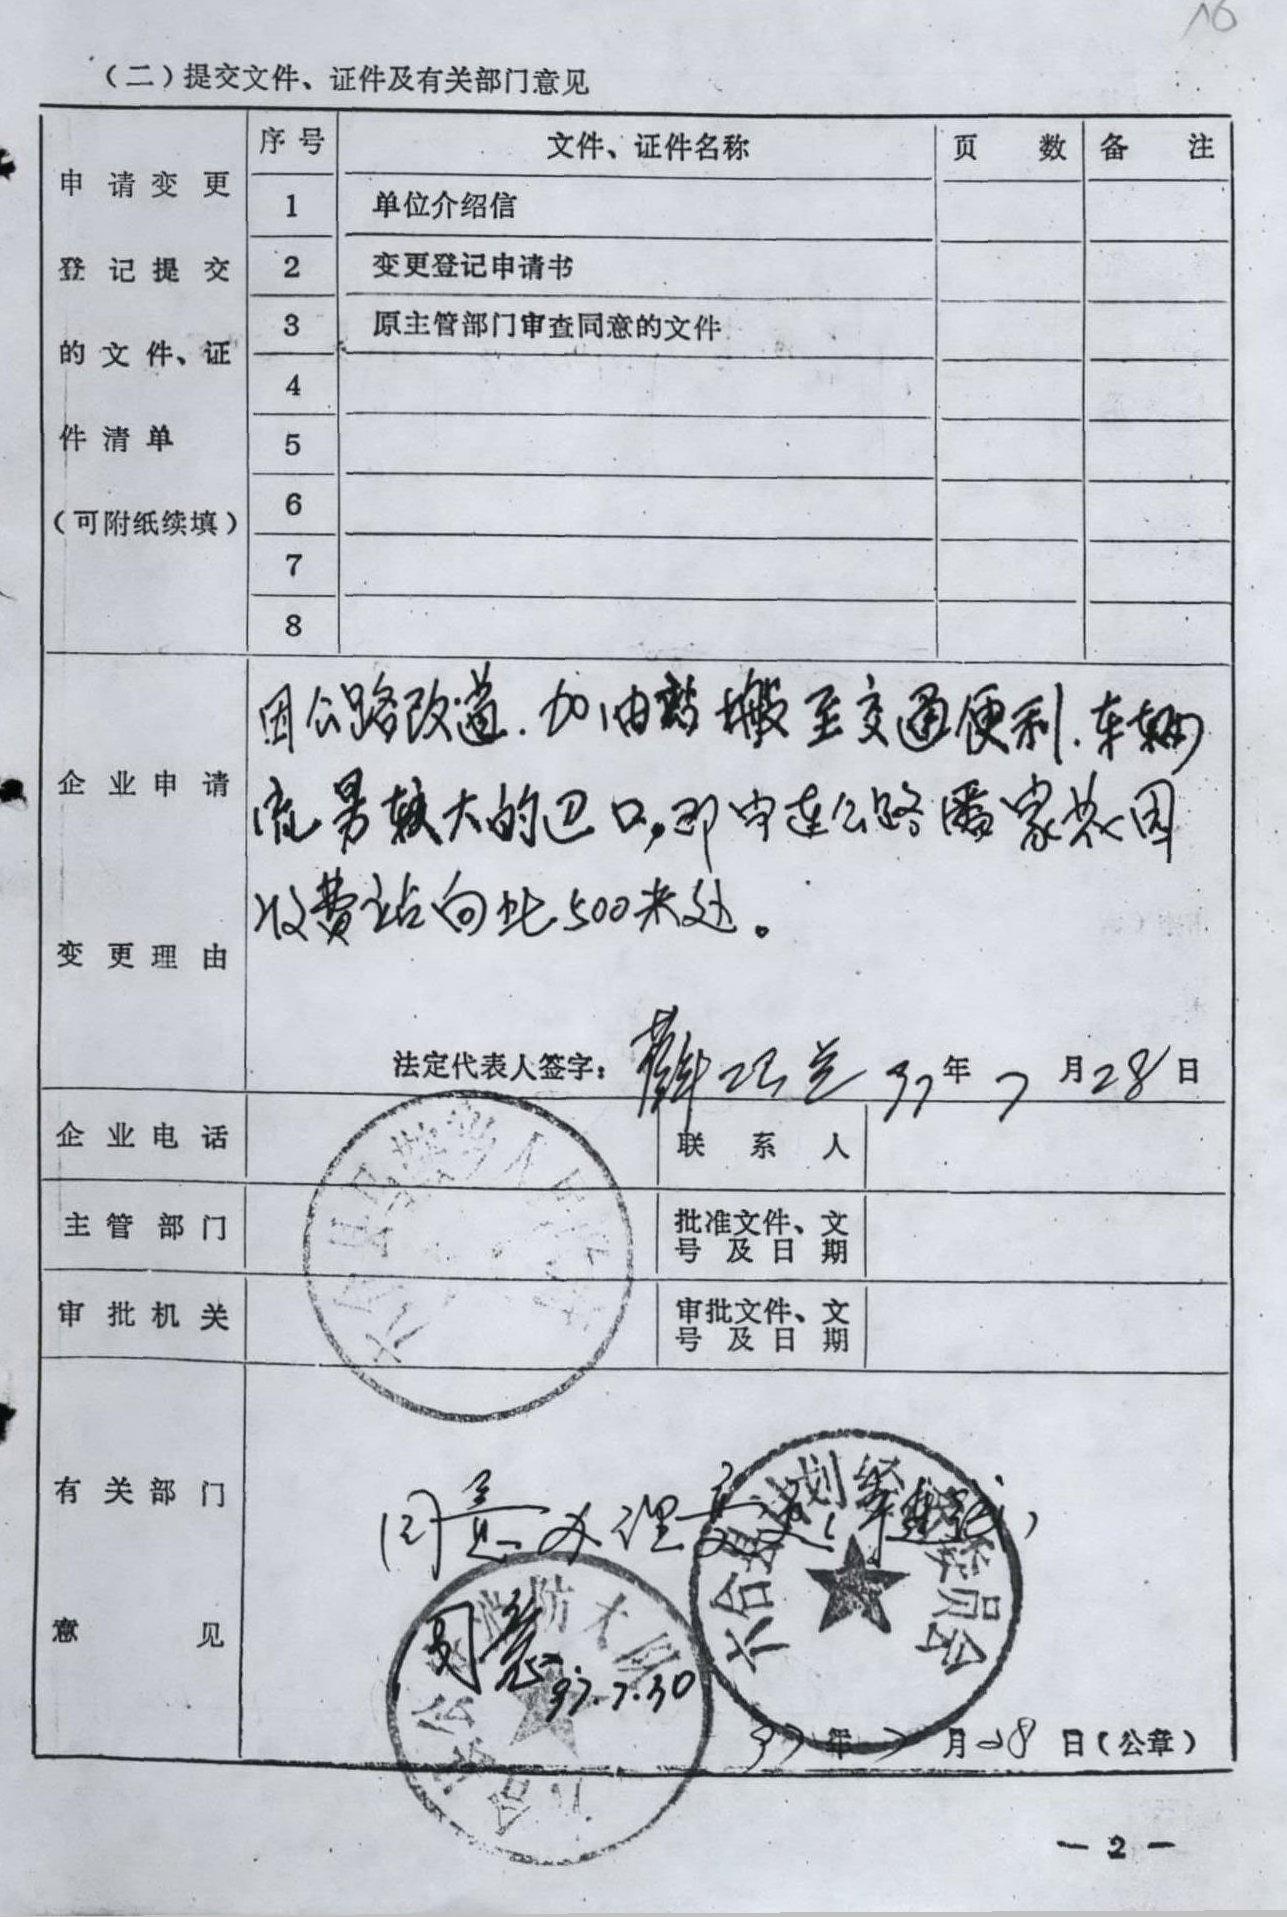 16
（二）提交文件、证件及有关部门意见
申请变更登记提交的文件、证件清单（可附纸续填）
序号 文件、证件名称 页数 备注
1 单位介绍信
2 变更登记申请书
3 原主管部门审查同意的文件
4
5
6
7
8
企业申请变更理由
因公路改道.加油站搬至交通便利.车辆
流量较大的道口,即宁连公路潘家花园
收费站向北500米处。
法定代表人签字： 97年7月28日
企业电话 联系人
主管部门 批准文件、文号及日期
审批机关 审批文件、文号及日期
六合县 人民政府
有关部门意见
同意办理变更
六合县计划经济委员会
同意 97.7.30
六合县公安 消防大队
97年7月28日（公章）
— 2 —